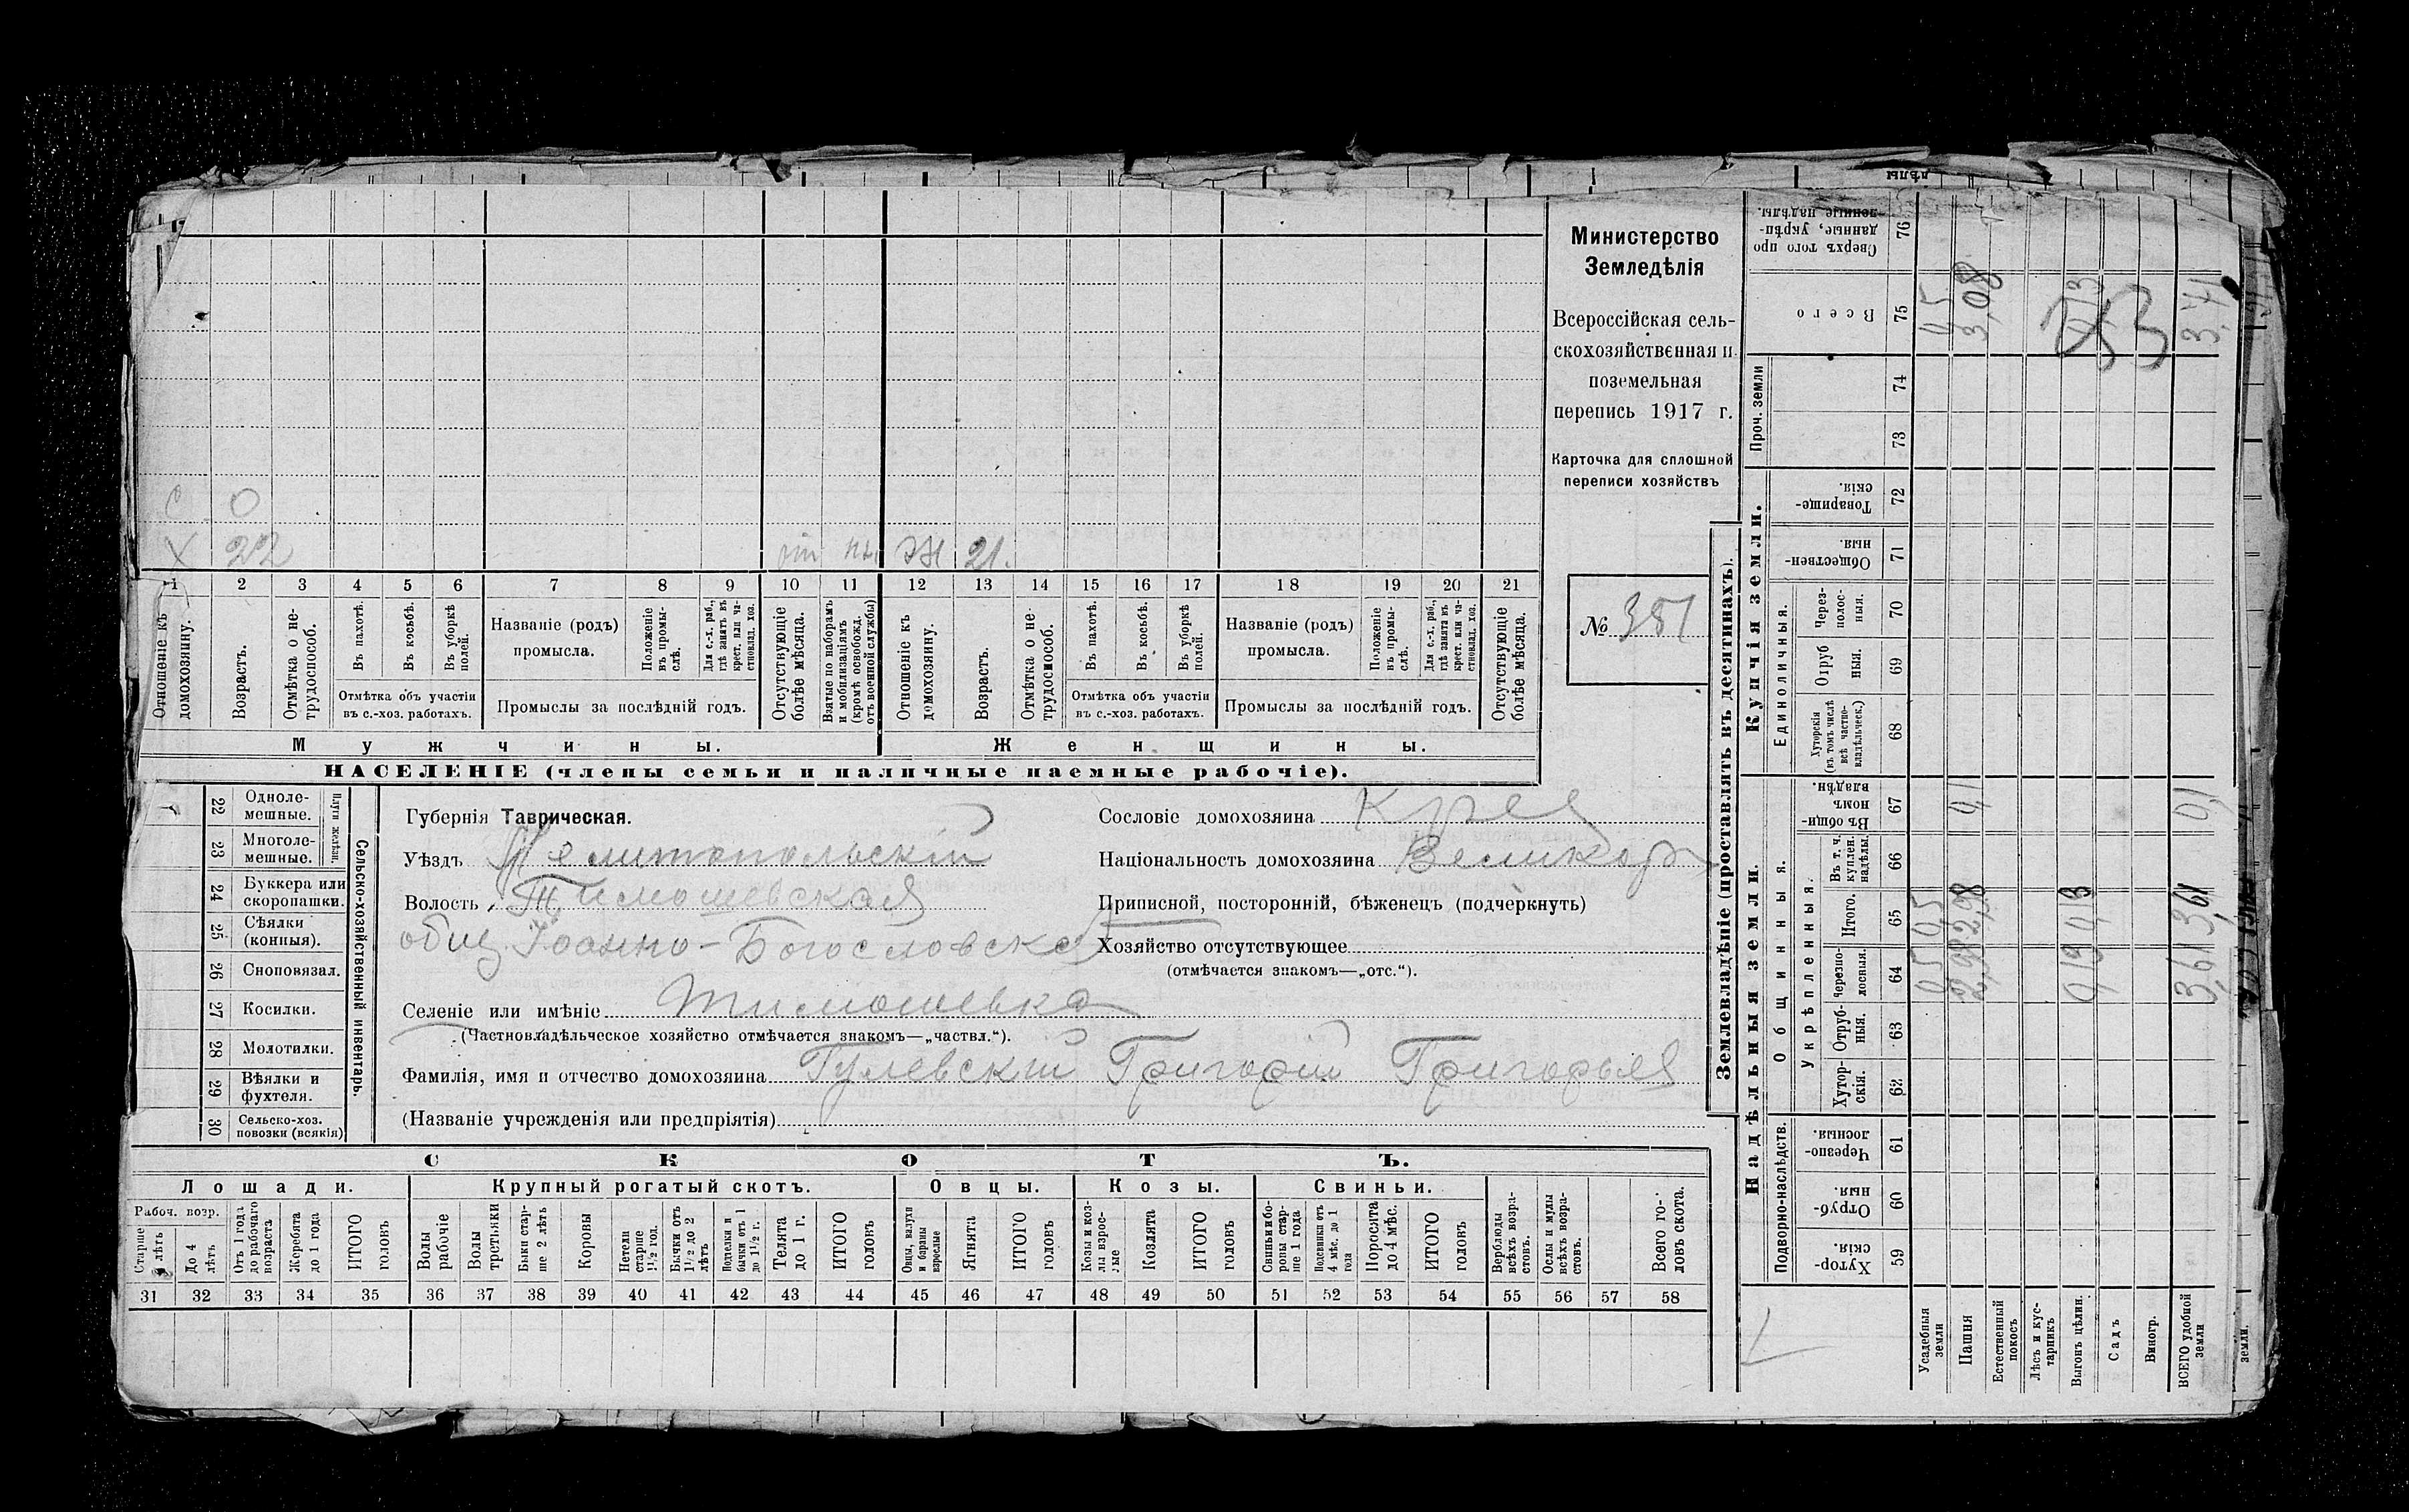 Министерство
Земледѣлія
Всероссійская сель-
скохозяйственная и
поземельная
перепись 1917 г.
Карточка для сплошной
переписи хозяйствъ
№ 381
с 0
х 22 Ж 21.
1 2 3 4 5 6 7 8 9 10 11 12 13 14 15 16 17 18 19 20 21
Отношеніе къ домохозяину.
Возрастъ.
Отмѣтка о не-трудоспособ.
Въ пахотѣ.
Въ косьбѣ.
Въ уборкѣ полей.
Отмѣтка объ участіи
въ с.-хоз. работахъ.
Названіе (родъ)
промысла.
Положеніе въ промы-слѣ.
Для с.-х. раб., гдѣ занятъ въ крест. или ча-стновлад. хоз.
Промыслы за послѣдній годъ.
Отсутствующіе болѣе мѣсяца.
Взятые по наборамъ и мобилизаціямъ (кромѣ освобожд. отъ военной службы)
Отношеніе къ домохозяину.
Возрастъ.
Отмѣтка о не-трудоспособ.
Въ пахотѣ.
Въ косьбѣ.
Въ уборкѣ полей.
Отмѣтка объ участіи
въ с.-хоз. работахъ.
Названіе (родъ)
промысла.
Положеніе въ промы-слѣ.
Для с.-х. раб., гдѣ занята въ крест. или ча-стновлад. хоз.
Промыслы за послѣдній годъ.
Отсутствующіе болѣе мѣсяца.
Мужчины. Женщины.
НАСЕЛЕНІЕ (члены семьи и наличные наемные рабочіе).
22 Одноле-мешные.
23 Многоле-мешные.
Плуги желѣзн.
24 Буккера или скоропашки.
25 Сѣялки (конныя).
26 Сноповязал.
27 Косилки.
28 Молотилки.
29 Вѣялки и фухтеля.
30 Сельско-хоз. повозки (всякія)
Сельско-хозяйственный инвентарь.
Губернія Таврическая.
Уѣздъ Мелитопольскій
Волость Тимошевская
общ. Іоанно-Богословско
Селеніе или имѣніе Тимошевка
(Частновладѣльческое хозяйство отмѣчается знакомъ—„частвл.“).
Фамилія, имя и отчество домохозяина Гулевскій Григорій Григорьев
(Названіе учрежденія или предпріятія)
Сословіе домохозяина Крес
Національность домохозяина Великор
Приписной, посторонній, бѣженецъ (подчеркнуть)
Хозяйство отсутствующее
(отмѣчается знакомъ—„отс.“).
СКОТЪ.
Лошади. Крупный рогатый скотъ. Овцы. Козы. Свиньи.
Рабоч. возр.
Старше 4 лѣтъ
До 4 лѣтъ
Отъ 1 года до рабочаго возраста
Жеребята до 1 года
ИТОГО головъ
Волы рабочіе
Волы третьяки
Быки стар-ше 2 лѣтъ
Коровы
Нетели старше 1½ год.
Бычки отъ 1½ до 2 лѣтъ
Подтелки и бычки отъ 1 до 1½ г.
Телята до 1 г.
ИТОГО головъ
Овцы, валухи и бараны взрослые
Ягнята
ИТОГО головъ
Козы и коз-лы взрос-лые
Козлята
ИТОГО головъ
Свиньи и бо-ровы стар-ше 1 года
Подсвинки отъ 4 мѣс. до 1 года
Поросята до 4 мѣс.
ИТОГО головъ
Верблюды всѣхъ возра-стовъ.
Ослы и мулы всѣхъ возра-стовъ.
Всего го-ловъ скота.
31 32 33 34 35 36 37 38 39 40 41 42 43 44 45 46 47 48 49 50 51 52 53 54 55 56 57 58
Землевладѣніе (проставлять въ десятинахъ).
Надѣльныя земли. Купчія земли. Проч. земли
Подворно-наслѣдств. Общинныя. Укрѣпленныя. Единоличныя.
59 Хутор-скія.
60 Отруб-ныя.
61 Черезпо-лосныя.
62 Хутор-скія.
63 Отруб-ныя.
64 Черезпо-лосныя.
65 Итого.
66 Въ т. ч. куплен. надѣлы.
67 Въ общи-номъ владѣн.
68 Хуторскія (въ томъ числѣ всѣ частно-владѣльческ.)
69 Отруб ныя.
70 Через-полос-ныя.
71 Обществен-ныя.
72 Товарище-скія.
73
74
75 Всего
76 Сверхъ того про данные, укрѣп-ленные надѣлы.
Усадебныя земли 0,5 0,5 0,5
Пашня 2,98 2,98 0,1 3,08
Естественный покосъ
Лѣсъ и кус-тарникъ
Выгонъ цѣлин. 0,13 0,13 0,13
Садъ
Виногр.
ВСЕГО удобной земли 3,61 3,61 0,1 3,71
земли.